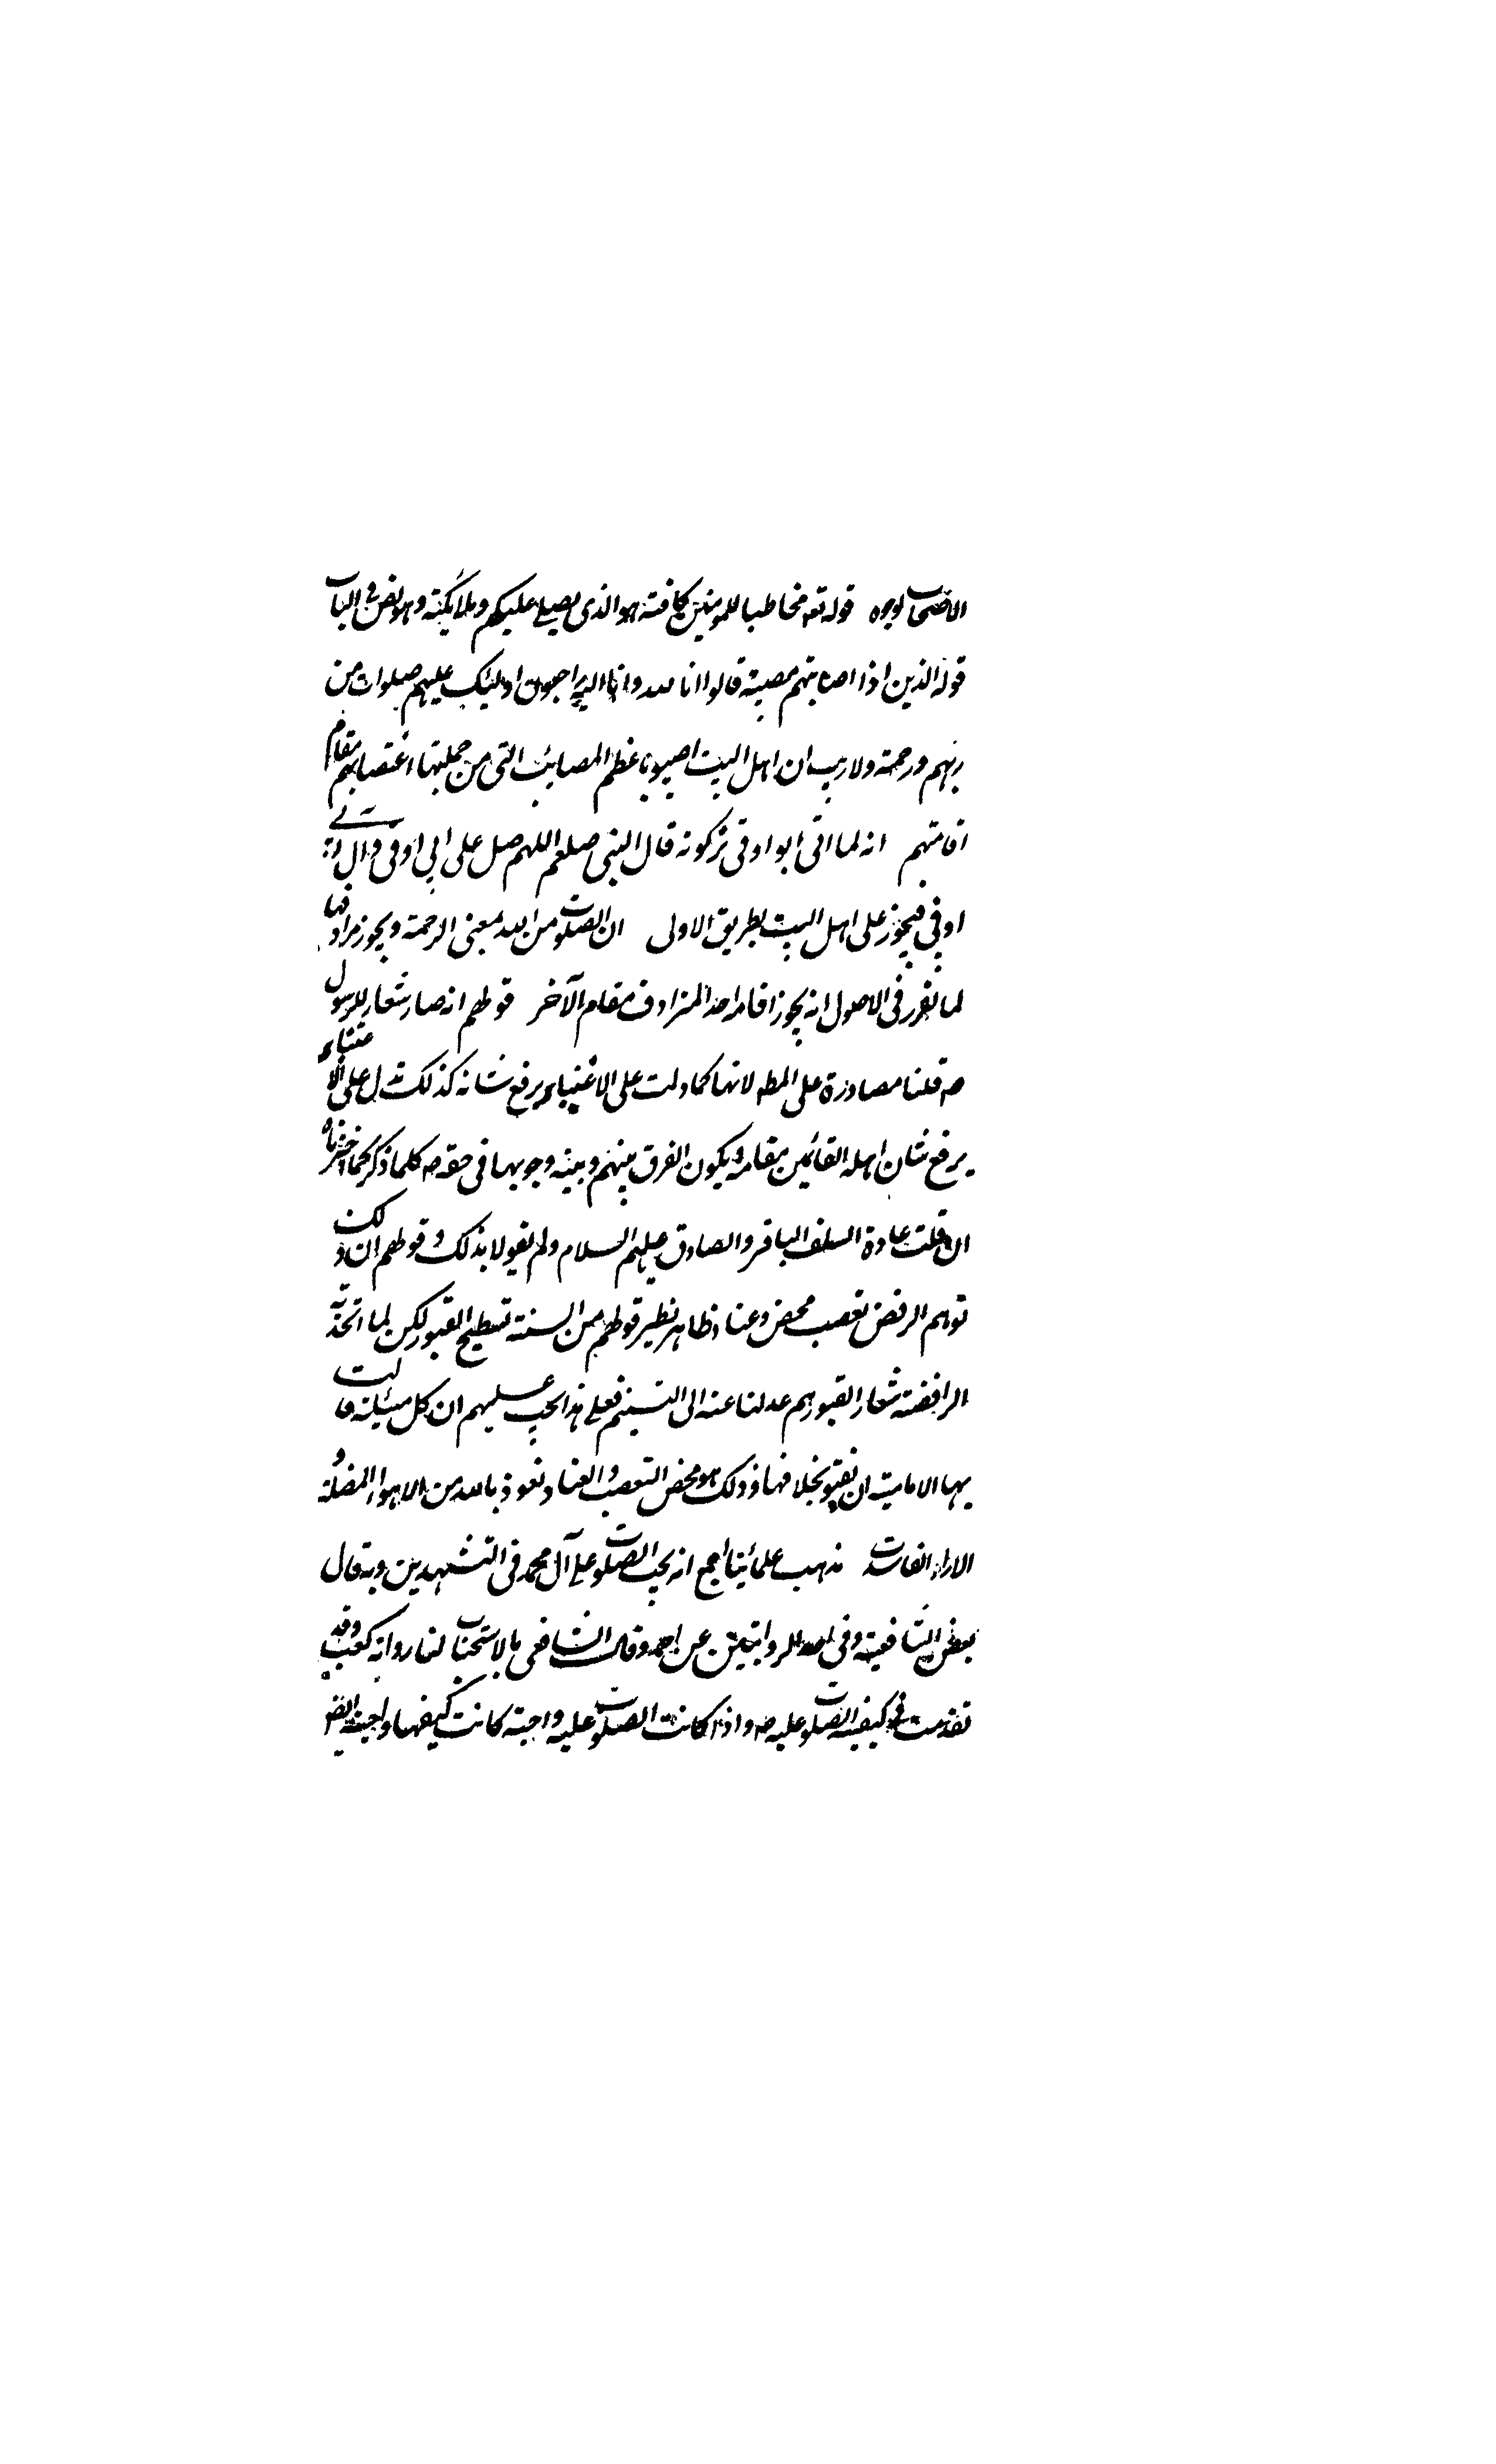 الاصحاب لوجوه قوله تعه مخاطبا للمومنين كافته هو الذى يصلى عليكم و ملائكته و هو نص فى الباب
قوله الذين اذا اصابتهم مصيبة قالوا انا لله و انا اليه راجعون اولئك عليهم صلوات من
ربهم و رحمة ولا ريب ان اهل البيت اصيبوا باعظم المصائب التى من جملتها اغتصابهم مقام
اقامتهم انه لما اتى ابو اوفى بزكوته قال النبى صلعم اللهم صل على ابى اوفى و آل ابى
اوفى فيجوز على اهل البيت بطريق الاولى ان الصلوت من الله بمعنى الرحمة و يجوز مرادفها
لما تقرر فى الاصول انه يجوز اقامة احد المترادف مقام الآخر قولهم انه صار شعار للرسول
صه قلنا مصادرة على المطه لانها كما دلت على الاعتناء برفع شانه كذلك تدل على الاعتناء
برفع شان اهله القائمين مقامه و يكون الفرق بينهم و بينه وجوبها فى حقه صه كلما ذكر كما اخترناه
ان قلت عادة السلف الباقر و الصادق عليهم السلام ولم يقولا بذلك و قولهم ان ذلك
توهم الرفض تعصب محض و عناد ظاهر نظير قولهم من السنة تسطيح القبور لكن لما اتخذته
الرافضته شعار القبورهم عدلنا عنه الى التسنيم فعلى هذا يجب عليهم ان كل مسئلة قالت
بها الاماميته ان يفتو بخلافها و ذلك هو محض التعصب و العناد نعوذ بالله من الاهواء المضلة و
الاراء الفاسدت مذهب علمائنا اجمع انه يجب الصلوت على آل محمد فى التشهدين و به قال
بعض الشافعية و فى احد الروايتين عن احمد و قال الشافعى بالاستحباب لنا رواية كعب و قد
تقدمت فى كيفية الصلوت عليه صه و اذا كانت الصلوت عليه واجبته كانت كيفيتها واجبته ايضا